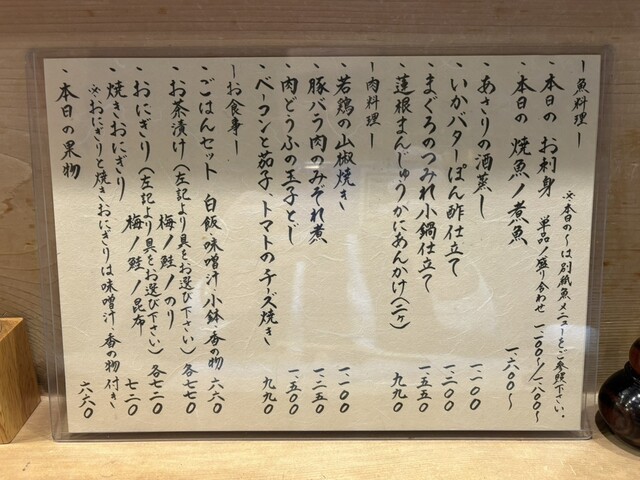 ー魚料理ー
※本日の〜は別紙魚メニューをご参照下さい。
・本日の お刺身 単品/盛り合わせ 一、二〇〇〜/一、八〇〇〜
・本日の 焼魚/煮魚 一、六〇〇〜
・あさりの酒蒸し 一、一〇〇
・いかバターぽん酢仕立て 一、二〇〇
・まぐろのつみれ小鍋仕立て 一、五五〇
・蓮根まんじゅうかにあんかけ(二ヶ) 九九〇
ー肉料理ー
・若鶏の山椒焼き 一、一〇〇
・豚バラ肉のみぞれ煮 一、二五〇
・肉どうふの玉子とじ 一、五〇〇
・ベーコンと茄子、トマトのチーズ焼き 九九〇
ーお食事ー
・ごはんセット 白飯・味噌汁・小鉢・香の物 六六〇
・お茶漬け(左記より具をお選び下さい) 各七七〇
梅/鮭/のり
・おにぎり(左記より具をお選び下さい) 各七二〇
梅/鮭/昆布
・焼きおにぎり 七二〇
※おにぎりと焼きおにぎりは味噌汁・香の物付き
・本日の果物 六六〇